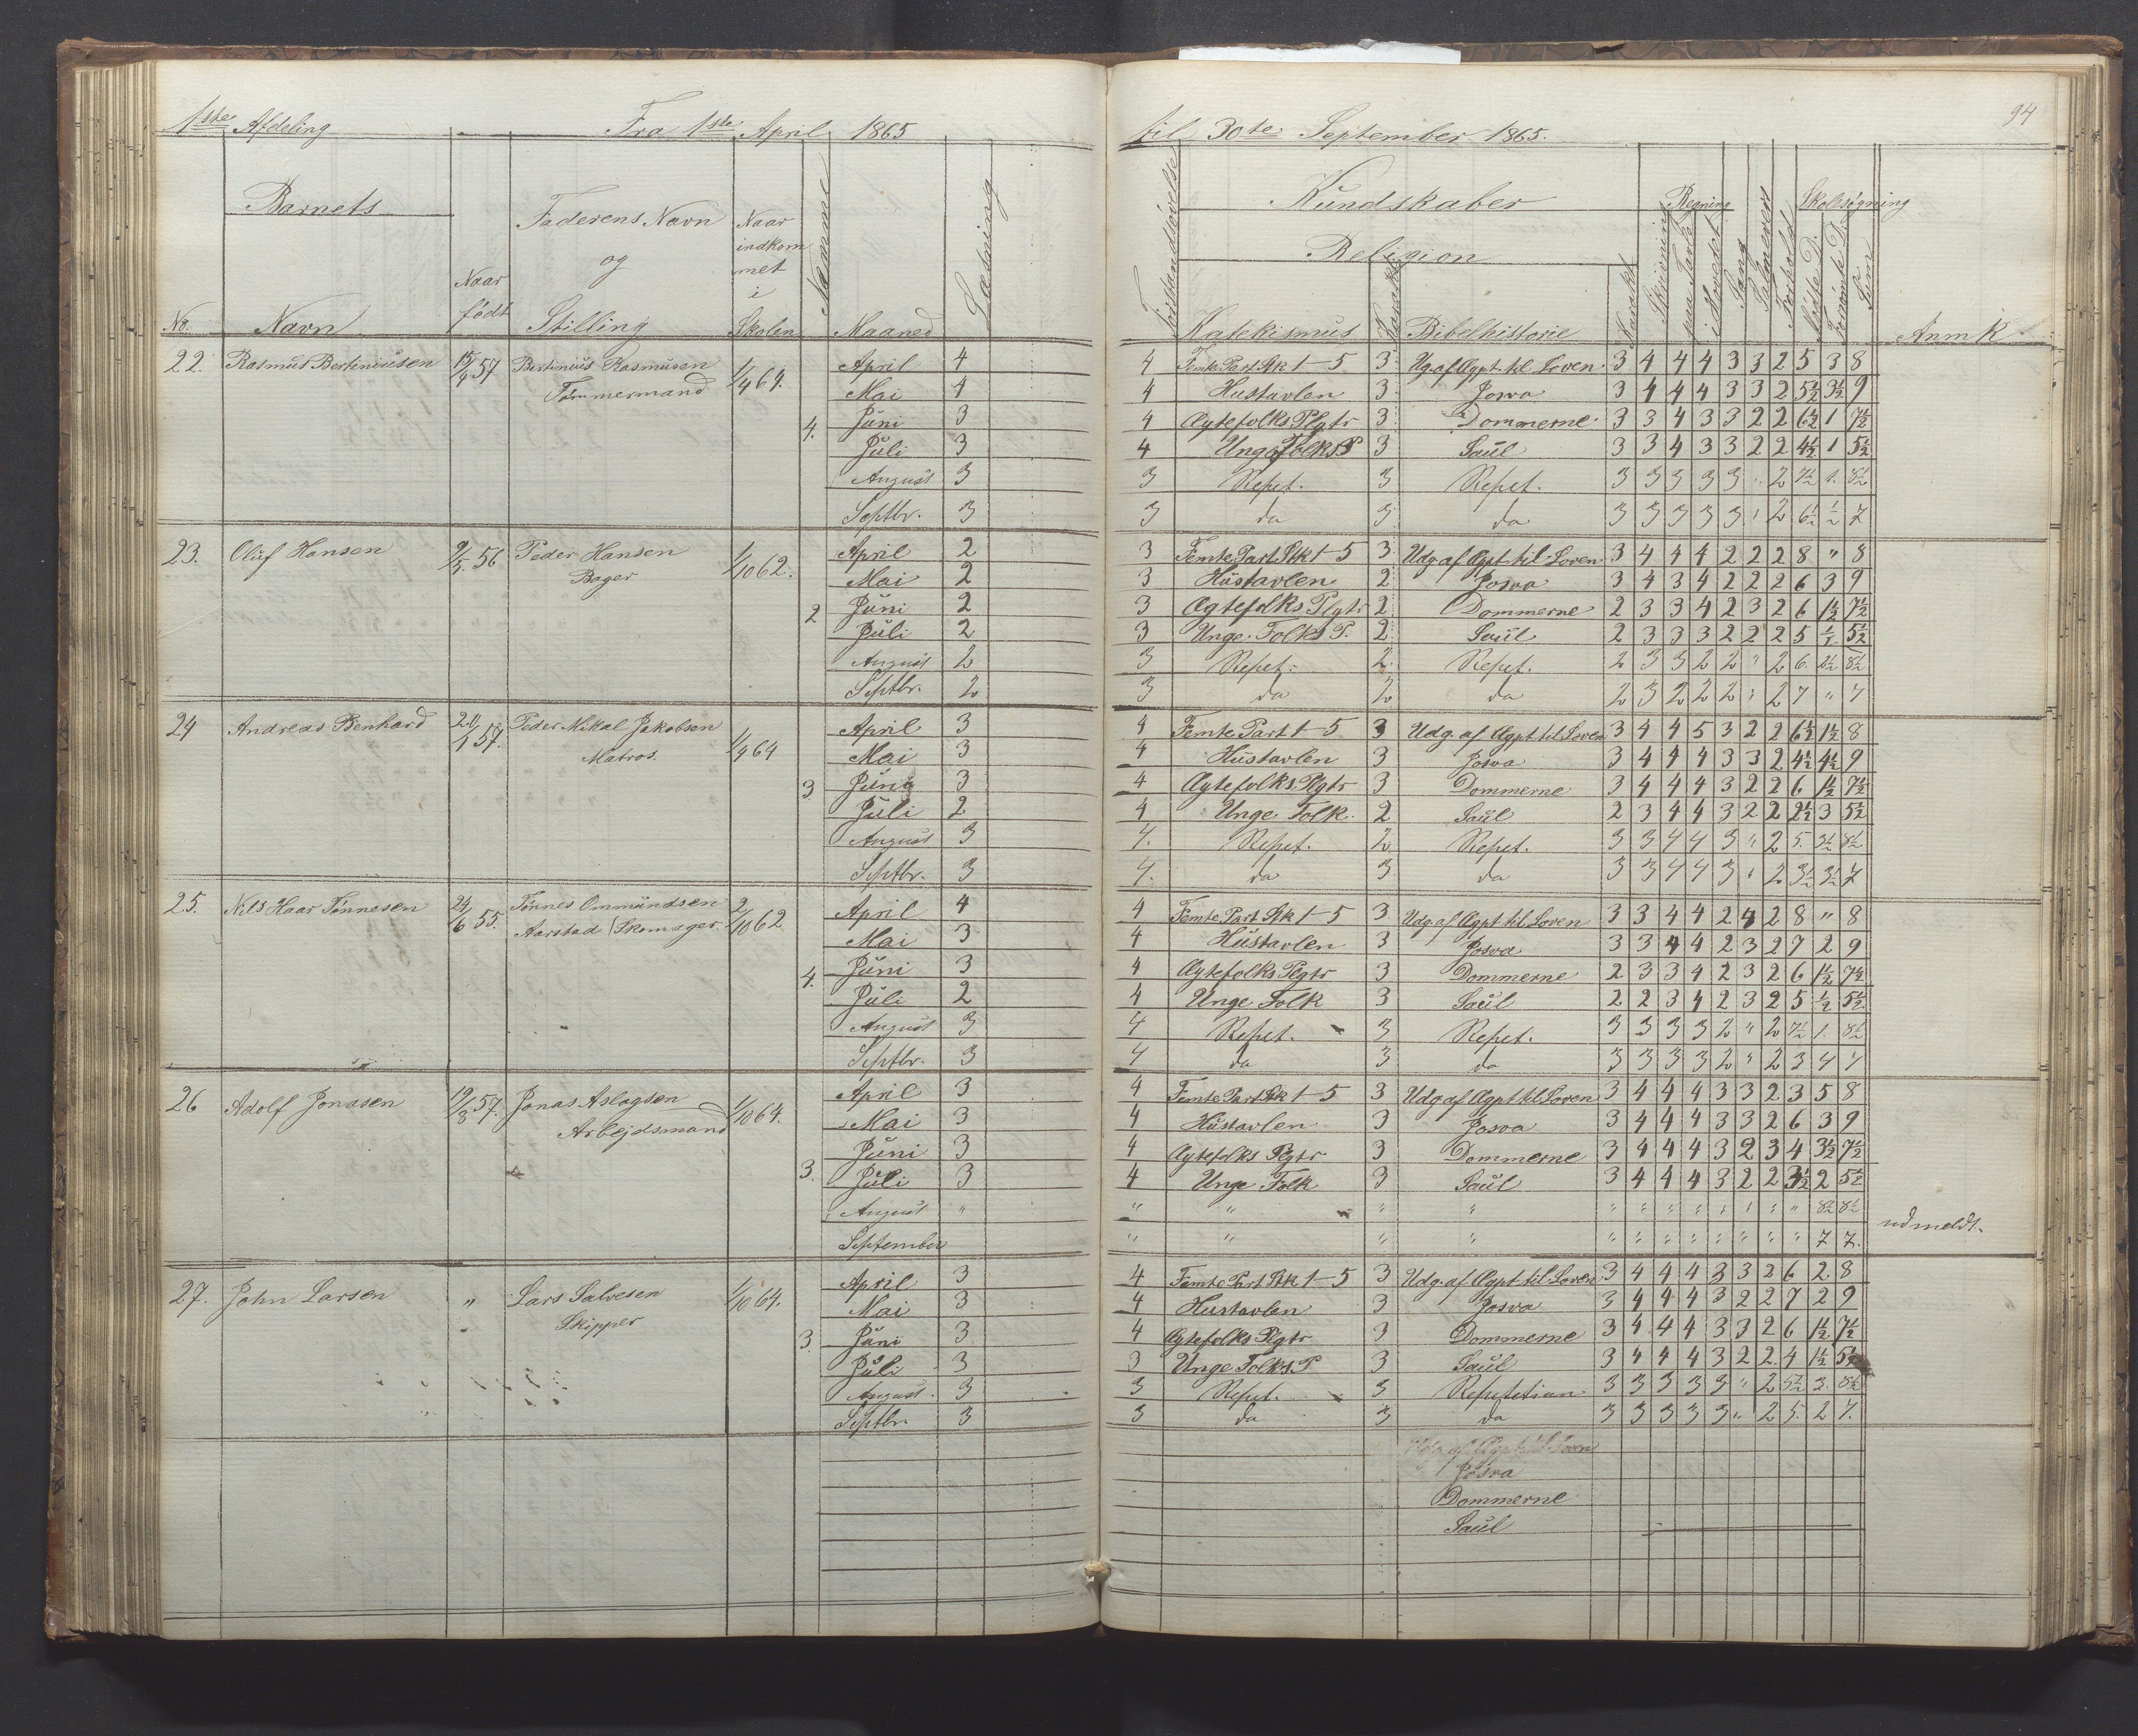 1ste Afdeling Fra 1ste April 1865
Barnets
No. Navn Naar født Faderens Navn og Stilling Naar indkommet i Skolen Maaned Læsning
22. Rasmus Bertiniusen 15/4 57 Bertinius Rasmusen 1/4 64. April 4
Tømmermand Mai 4
4. Juni 3
Juli 3
August 3
Septbr. 3
23. Oluf Hansen 9/5. 56 Peder Hansen 1/10 62. April 2
Bager Mai 2
2 Juni 2
Juli 2
August 2
Septbr. 2
24 Andreas Benhard 20/1 57. Peder Mikal Jakobsen 1/4 64 April 3
Matros. Mai 3
3. Juni 3
Juli 2
August 3
Septbr. 3
25. Nils Haar Tønnesen 24/6 55. Tønnes Ommundsen 2/10 62 April 4
Aarstad / Skomager. Mai 3
4. Juni 3
Juli 2
August 3
Septbr. 3
26 Adolf Jonasen 19/8 57. Jonas Aslagsen 1/10 64. April 3
Arbejdsmand Mai 3
3. Juni 3
Juli 3
August "
September
27. John Larsen " Lars Salvesen 1/10 64. April 3
Skipper Mai 3
3. Juni 3
Juli 3
August. 3
Septbr. 3
94
til 30te September 1865.
Forstandsøvelse Kundskaber Skrivning Regning paa Tavle i Hovedet Sang Forhold Skolesøgning Mødte D. Forsømte D. Sum
Religion
Katekismus Karakt Bibelhistorie Karakt Anmk
4 Femte Part Stk 1-5 3 Ug. af Ægpt. til Loven 3 4 4 4 3 3 2 5 3 8
4 Hustavlen 3 Josva 3 4 4 4 3 3 2 5½ 3½ 9
4 Ægtefolks Plgtr 3 Dommerne 3 3 4 3 3 2 2 6½ 1 7½
4 Unge Folks P 3 Saül 3 3 4 3 3 2 2 4½ 1 5½
3 Repet. 3 Repet. 3 3 3 3 3 " 2 7½ 1. 8½
3 da 3 da 3 3 3 3 3 " 2 6½ ½ 7
3 Femte Part Stk 1-5 3 Udg. af Ægpt. til Loven 3 4 4 4 2 2 2 8 " 8
3 Hustavlen 2 Josva 3 4 3 4 2 2 2 6 3 9
3 Ægtefolks Plgtr 2 Dommerne 2 3 3 4 2 3 2 6 1½ 7½
3 Unge Folks P. 2 Saül 2 3 3 3 2 2 2 5 ½ 5½
3 Repet. 2. Repet. 2 3 3 2 2 " 2 6. 2½ 8½
3 da 2 da 2 3 2 2 2 " 2 7 " 7
4 Femte Part 1-5 3 Udg. af Ægpt til Loven 3 4 4 5 3 2 2 6½ 1½ 8
4 Hustavlen 3 Josva 3 4 4 4 3 3 2 4½ 4½ 9
4 Ægtefolks Plgtr 3 Dommerne 3 4 4 4 3 2 2 6 1½ 7½
4 Unge Folk. 2 Saül 2 3 4 4 3 2 2 2½ 3 5½
4. Repet. 2 Repet. 3 3 4 4 3 " 2 5. 3½ 8½
4. da 3 da 3 3 4 4 3 " 2 3½ 3½ 7
4 Femte Part Stk 1-5 3 Udg. af Ægpt til Loven 3 3 4 4 2 4 2 8 " 8
4 Hustavlen 3 Josva 3 3 4 4 2 3 2 7 2 9
4 Ægtefolks Plgtr 3 Dommerne 2 3 3 4 2 3 2 6 1½ 7½
4 Unge Folk 3 Saül 2 2 3 4 2 3 2 5 ½ 5½
4 Repet. 3 Repet. 3 3 3 3 2 " 2 7½ 1. 8½
4 da 3 da 3 3 3 3 2 " 2 3 4 7
4 Femte Part Stk 1-5 3 Udg af Ægpt til Loven 3 4 4 4 3 3 2 3 5 8
4 Hustavlen 3 Josva 3 4 4 4 3 3 2 6 3 9
4 Ægtefolks Plgtr 3 Dommerne 3 4 4 4 3 2 3 4 3½ 7½
4 Unge Folk 3 Saül 3 4 4 4 3 2 2 3½ 2 5½
" " " " " " " " " " " " 8½ 8½
" " " " " " " " " " " " 7 7. udmeldt.
4 Femte Part Stk 1-5 3 Udg. af Ægpt til Loven 3 4 4 4 3 3 2 6 2 8
4 Hustavlen 3 Josva 3 4 4 4 3 2 2 7 2 9
4 Ægtefolks Plgtr 3 Dommerne 3 4 4 4 3 3 2 6 1½ 7½
3 Unge Folks. P 3 Saül 3 4 4 4 3 2 2. 4 1½ 5½
3 Repet. 3 Repetetian 3 3 3 3 3 " 2 5½ 3. 8½
3 da 3 da 3 3 3 3 3 " 2 5. 2 7.
Udg. af Ægpt til Loven
Josva
Dommerne
Saül